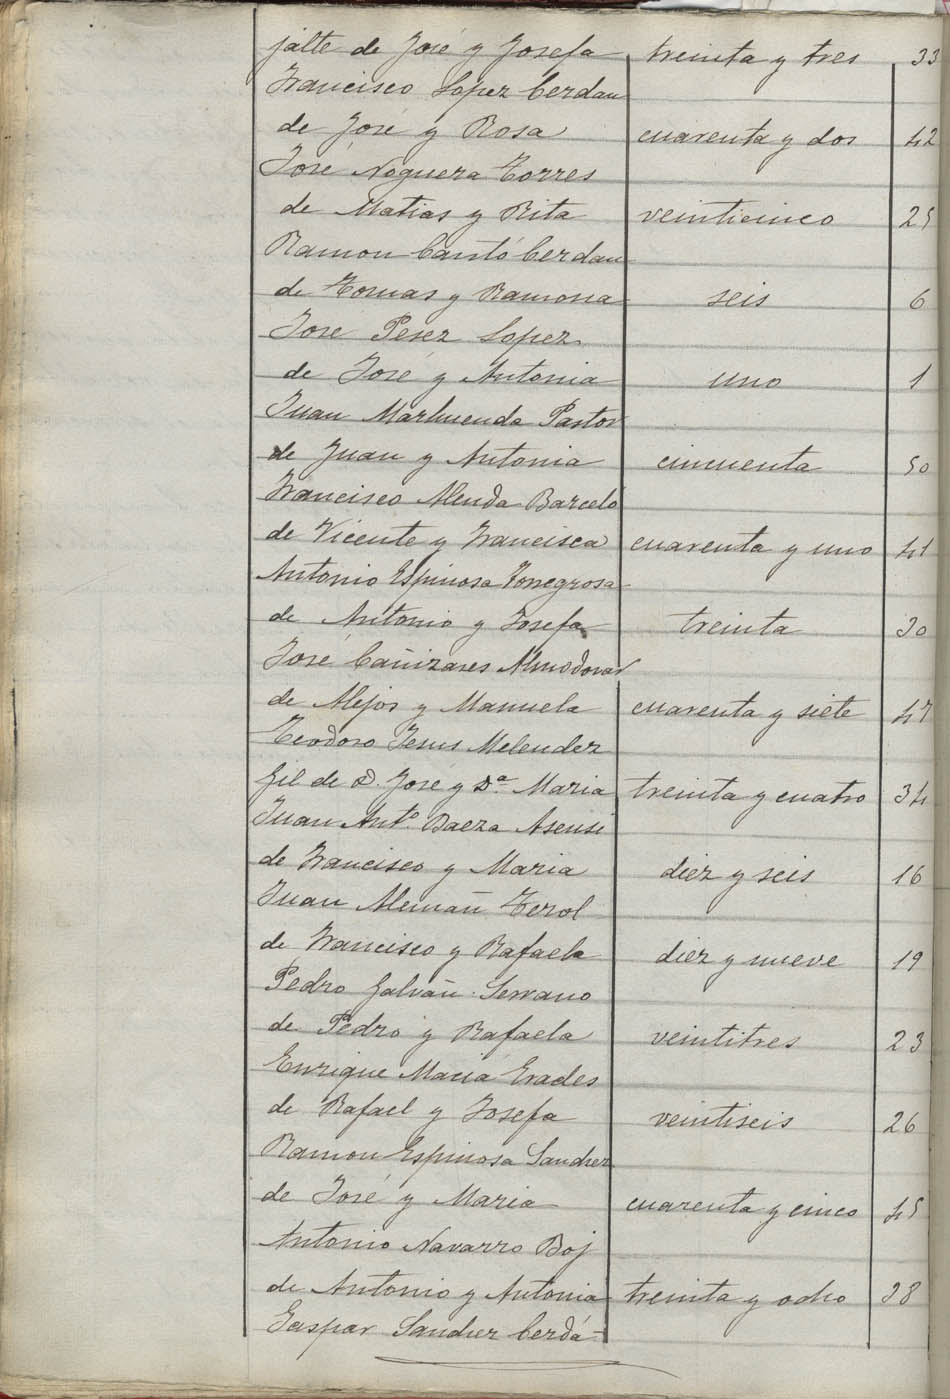 jalte de José y Josefa treinta y tres 33
Francisco Lopez Cerdan
de José y Rosa cuarenta y dos 42
José Noguera Torres
de Matias y Rita veinticinco 25
Ramon Cantó Cerdan
de Tomas y Ramona seis 6
José Perez Lopez
de José y Antonia uno 1
Juan Marhuenda Pastor
de Juan y Antonia cincuenta 50
Francisco Alenda Barceló
de Vicente y Francisca cuarenta y uno 41
Antonio Espinosa Torregrosa
de Antonio y Josefa treinta 30
José Cañizares Almodovar
de Alejos y Manuela cuarenta y siete 47
Teodoro Jesus Melendez
Gil de D. José y Dª Maria treinta y cuatro 34
Juan Antº Baeza Asensi
de Francisco y Maria diez y seis 16
Juan Alemañ Terol
de Francisco y Rafaela diez y nueve 19
Pedro Galvañ Serrano
de Pedro y Rafaela veintitres 23
Enrique Maciá Erades
de Rafael y Josefa veintiseis 26
Ramon Espinosa Sanchez
de José y Maria cuarenta y cinco 45
Antonio Navarro Boj
de Antonio y Antonia treinta y ocho 38
Gaspar Sanchez Cerdá